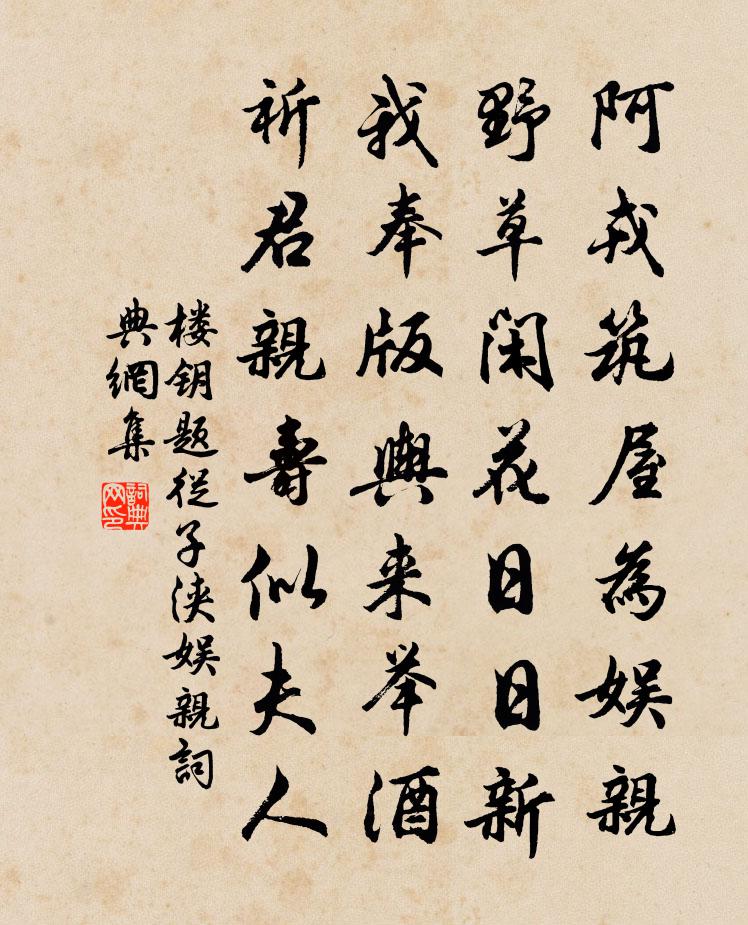 阿戎筑屋為娱親
野草閑花日日新
我奉版輿来举酒
祈君親壽似夫人
楼钥题從子浃娱親詞
典網集
詞典网印